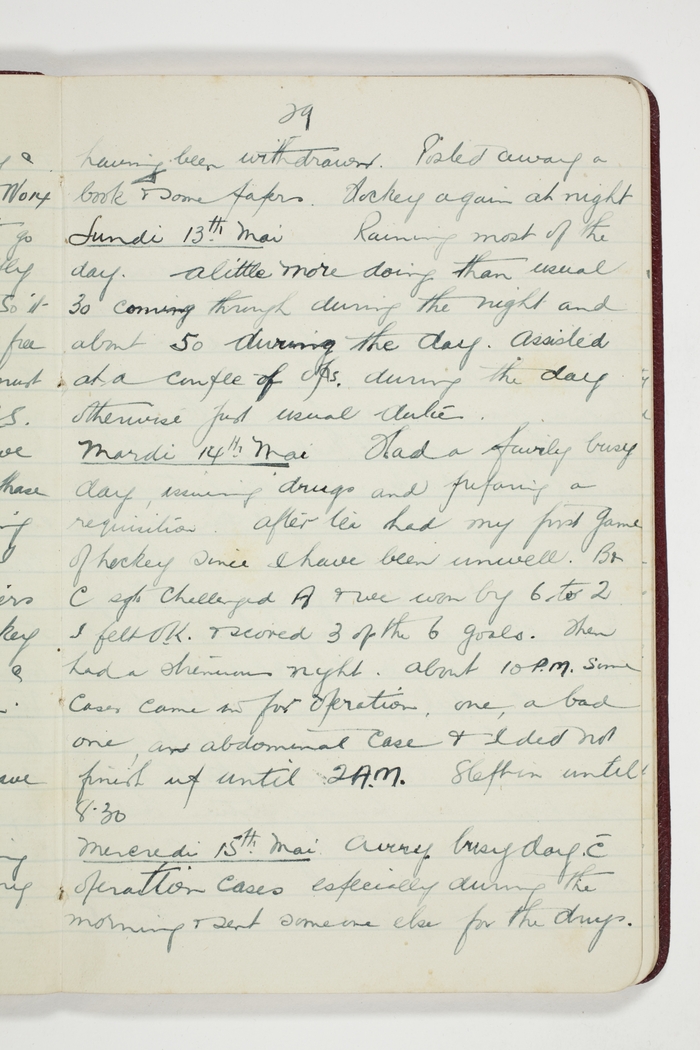 29
having been withdrawn. Posted away a
book & some papers. Hockey again at night
Lundi 13th Mai Raining most of the
day. A little more doing than usual
30 coming through during the night and
about 50 during the day. Assisted
at a couple of ops. during the day
otherwise just usual duties.
Mardi 14th Mai Had a fairly busy
day, issuing drugs and preparing a
requisition. After tea had my first game
of hockey since I have been unwell. B &
C sgts challenged A & we won by 6 to 2
I felt O.K. & scored 3 of the 6 goals. Then
had a strenuous night. About 10 P.M. some
cases came in for operation, one, a bad
one, an abdominal case & I did not
finish up until 2 A.M. Slept in until
8.30
Mercredi 15th Mai A very busy day c̄
operation cases especially during the
morning & sent someone else for the drugs.